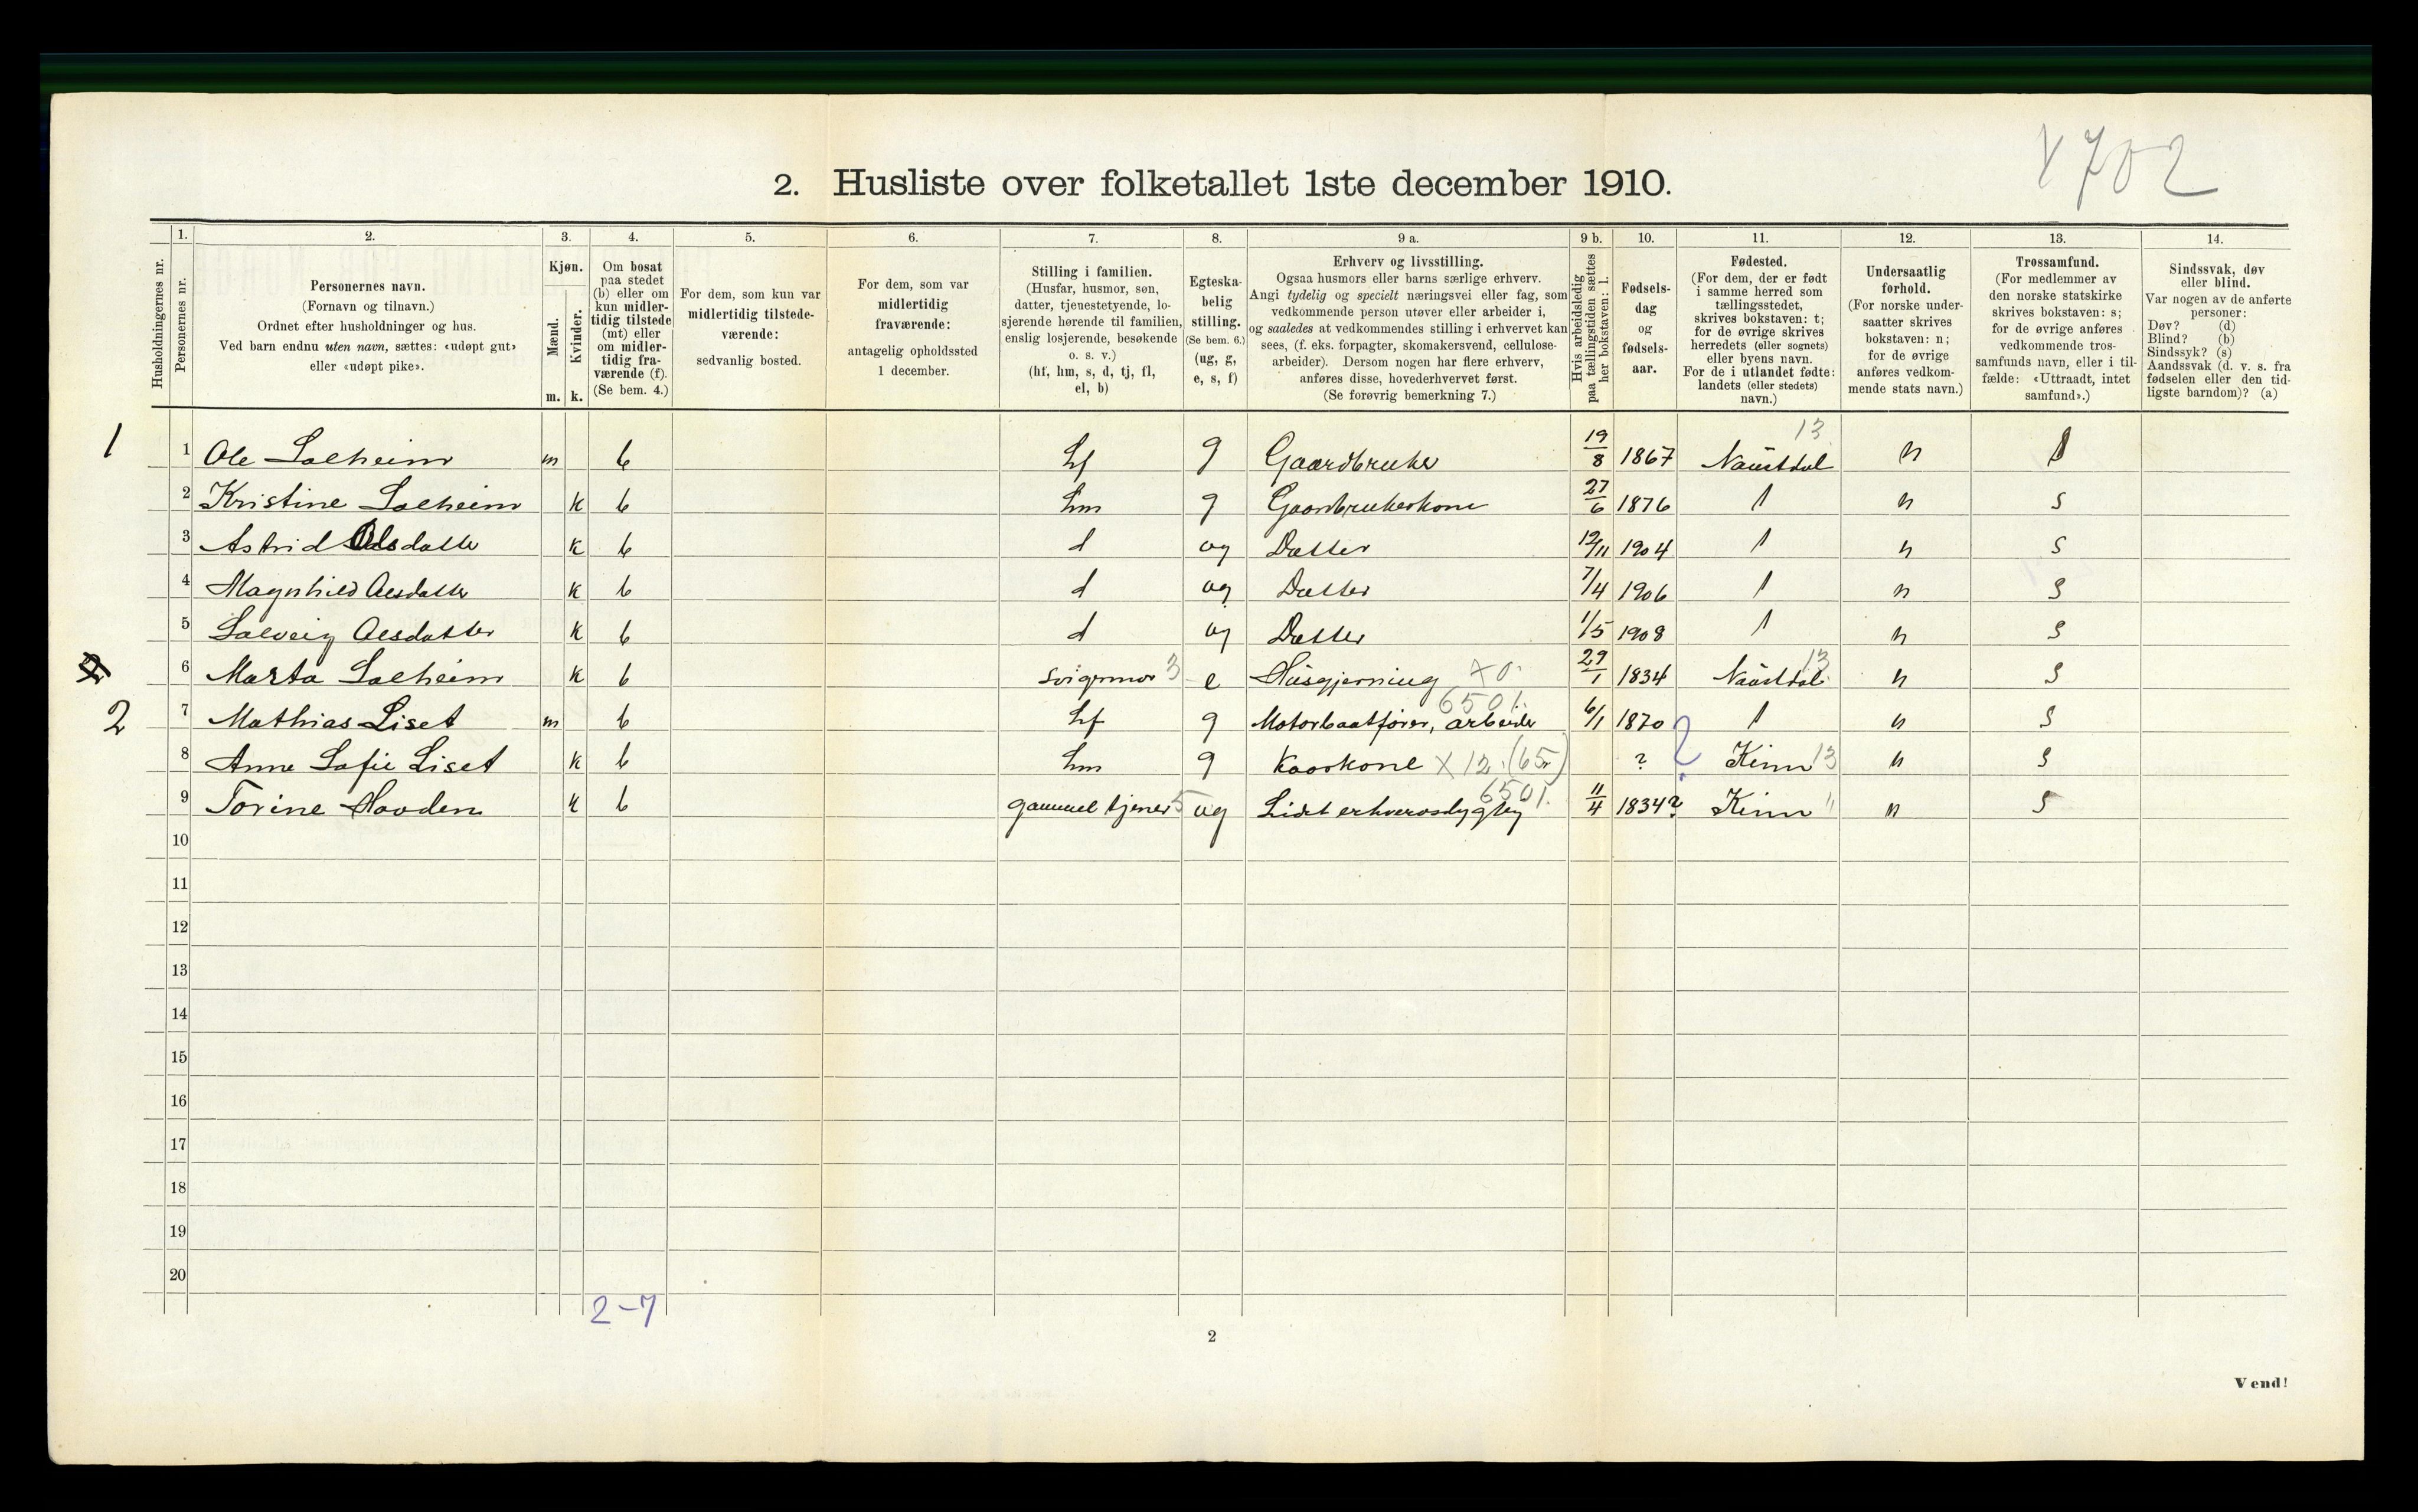 1702
2. Husliste over folketallet 1ste december 1910.
Husholdningernes nr.
1. Personernes nr.
2. Personernes navn.
(Fornavn og tilnavn.)
Ordnet efter husholdninger og hus.
Ved barn endnu uten navn, sættes: «udøpt gut»
eller «udøpt pike».
3. Kjøn.
Mænd. Kvinder.
m. k.
4. Om bosat
paa stedet
(b) eller om
kun midler-
tidig tilstede
(mt) eller
om midler-
tidig fra-
værende (f).
(Se bem. 4.)
5. For dem, som kun var
midlertidig tilstede-
værende:
sedvanlig bosted.
6. For dem, som var
midlertidig
fraværende:
antagelig opholdssted
1 december.
7. Stilling i familien.
(Husfar, husmor, søn,
datter, tjenestetyende, lo-
sjerende hørende til familien,
enslig losjerende, besøkende
o. s. v.)
(hf, hm, s, d, tj, fl,
el, b)
8. Egteska-
belig
stilling.
(Se bem. 6.)
(ug, g,
e, s, f)
9 a. Erhverv og livsstilling.
Ogsaa husmors eller barns særlige erhverv.
Angi tydelig og specielt næringsvei eller fag, som
vedkommende person utøver eller arbeider i,
og saaledes at vedkommendes stilling i erhvervet kan
sees, (f. eks. forpagter, skomakersvend, cellulose-
arbeider). Dersom nogen har flere erhverv,
anføres disse, hovederhvervet først.
(Se forøvrig bemerkning 7.)
9 b. Hvis arbeidsledig
paa tællingstiden sættes
her bokstaven: l.
10. Fødsels-
dag
og
fødsels-
aar.
11. Fødested.
(For dem, der er født
i samme herred som
tællingsstedet,
skrives bokstaven: t;
for de øvrige skrives
herredets (eller sognets)
eller byens navn.
For de i utlandet fødte:
landets (eller stedets)
navn.)
12. Undersaatlig
forhold.
(For norske under-
saatter skrives
bokstaven: n;
for de øvrige
anføres vedkom-
mende stats navn.)
13. Trossamfund.
(For medlemmer av
den norske statskirke
skrives bokstaven: s;
for de øvrige anføres
vedkommende tros-
samfunds navn, eller i til-
fælde: «Uttraadt, intet
samfund».)
14. Sindssvak, døv
eller blind.
Var nogen av de anførte
personer:
Døv? (d)
Blind? (b)
Sindssyk? (s)
Aandssvak (d. v. s. fra
fødselen eller den tid-
ligste barndom)? (a)
1 1 Ole Solheim m b hf g Gaardbruker 19/8 1867 Naustdal 13 n s
2 Kristine Solheim k b hm g Gaardbrukerkone 27/6 1876 t n s
3 Astrid Olsdatter k b d ug Datter 12/11 1904 t n s
4 Magnhild Olesdatter k b d ug Datter 7/4 1906 t n s
5 Solveig Olesdatter k b d ug Datter 1/5 1908 t n s
6 Marta Solheim k b svigermor 3 e Husgjerning x0 29/1 1834 Naustdal 13 n s
2 7 Mathias Liset m b hf g Motorbaatfører, arbeider 6501. 6/1 1870 t n s
8 Anne Sofie Liset k b hm g Kaarkone x 12. (65) ? ? Kinn 13 n s
9 Torine Hovden k b gammel tjener 5 ug Lidet erhvervsdygtig 6501. 11/4 1834? Kinn " n s
10
11
12
13
14
15
16
17
18
19
20
2-7
2
Vend!